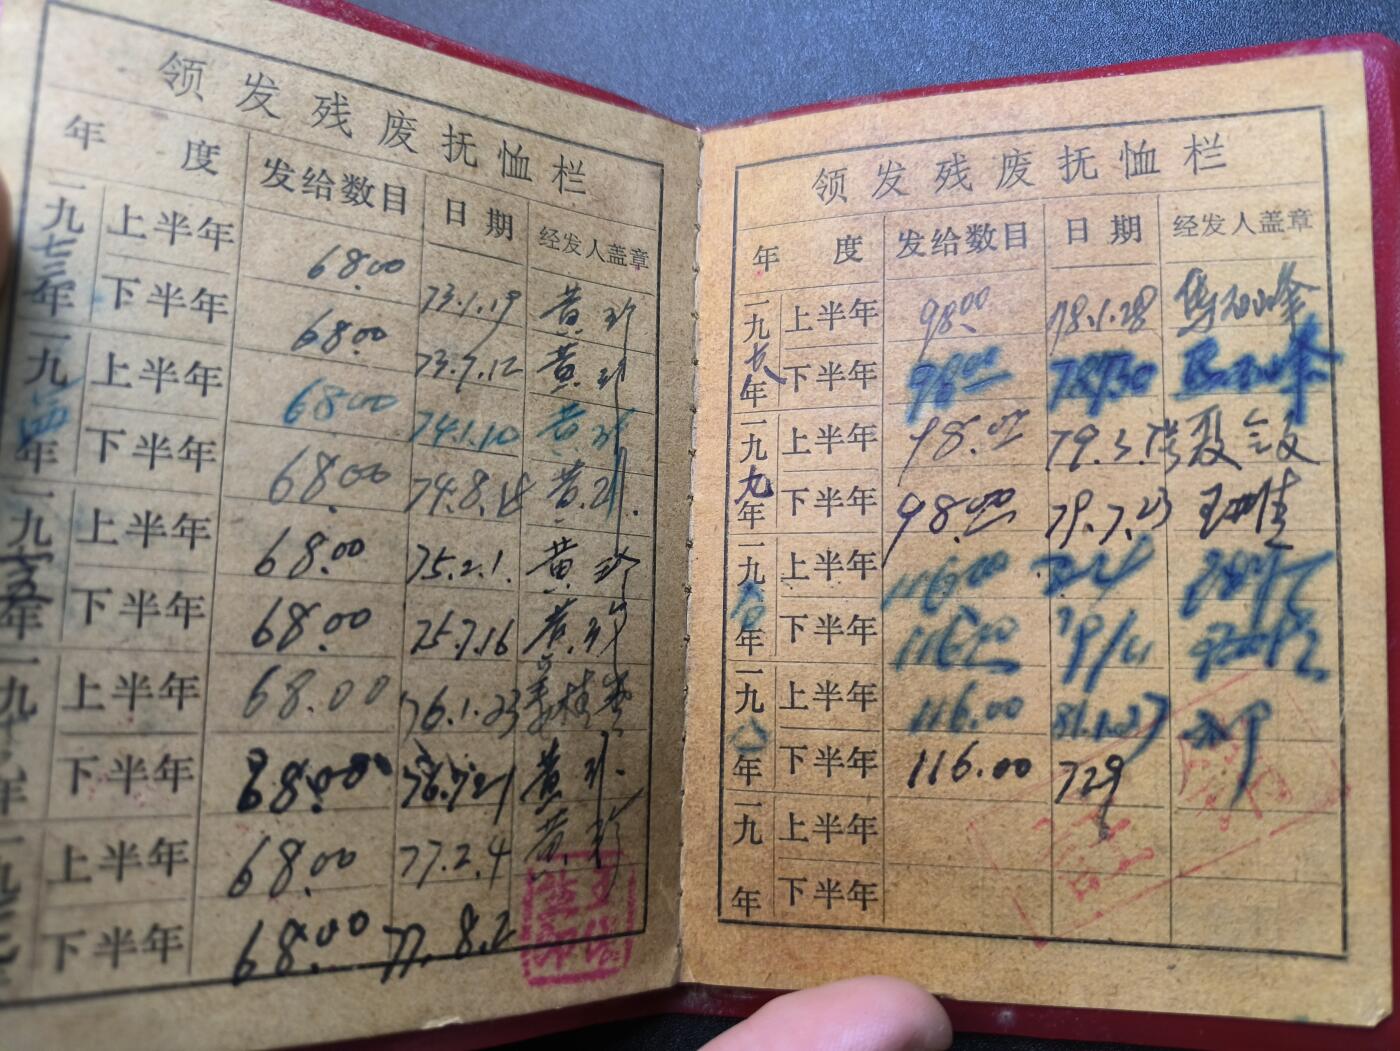 领发残废抚恤栏
年度 发给数目 日期 经发人盖章
一九七三年 上半年 68.00 73.1.19 黄珍
下半年 68.00 73.7.12 黄珍
一九七四年 上半年 68.00 74.1.10 黄珍
下半年 68.00 74.8.14 黄珍
一九七五年 上半年 68.00 75.2.1. 黄珍
下半年 68.00 75.7.16 黄珍
一九七六年 上半年 68.00 76.1.23
下半年 68.00 76.7.21 黄珍
一九七七年 上半年 68.00 77.2.4 黄珍
下半年 68.00 77.8.2
领发残废抚恤栏
年度 发给数目 日期 经发人盖章
一九七八年 上半年 98.00 78.1.28
下半年 98.00 78.7.30
一九七九年 上半年 98.00 79.3.
下半年 98.00 79.7.23
一九八〇年 上半年 116.00
下半年 116.00
一九八一年 上半年 116.00 81.1.27
下半年 116.00 729
一九 年 上半年
下半年